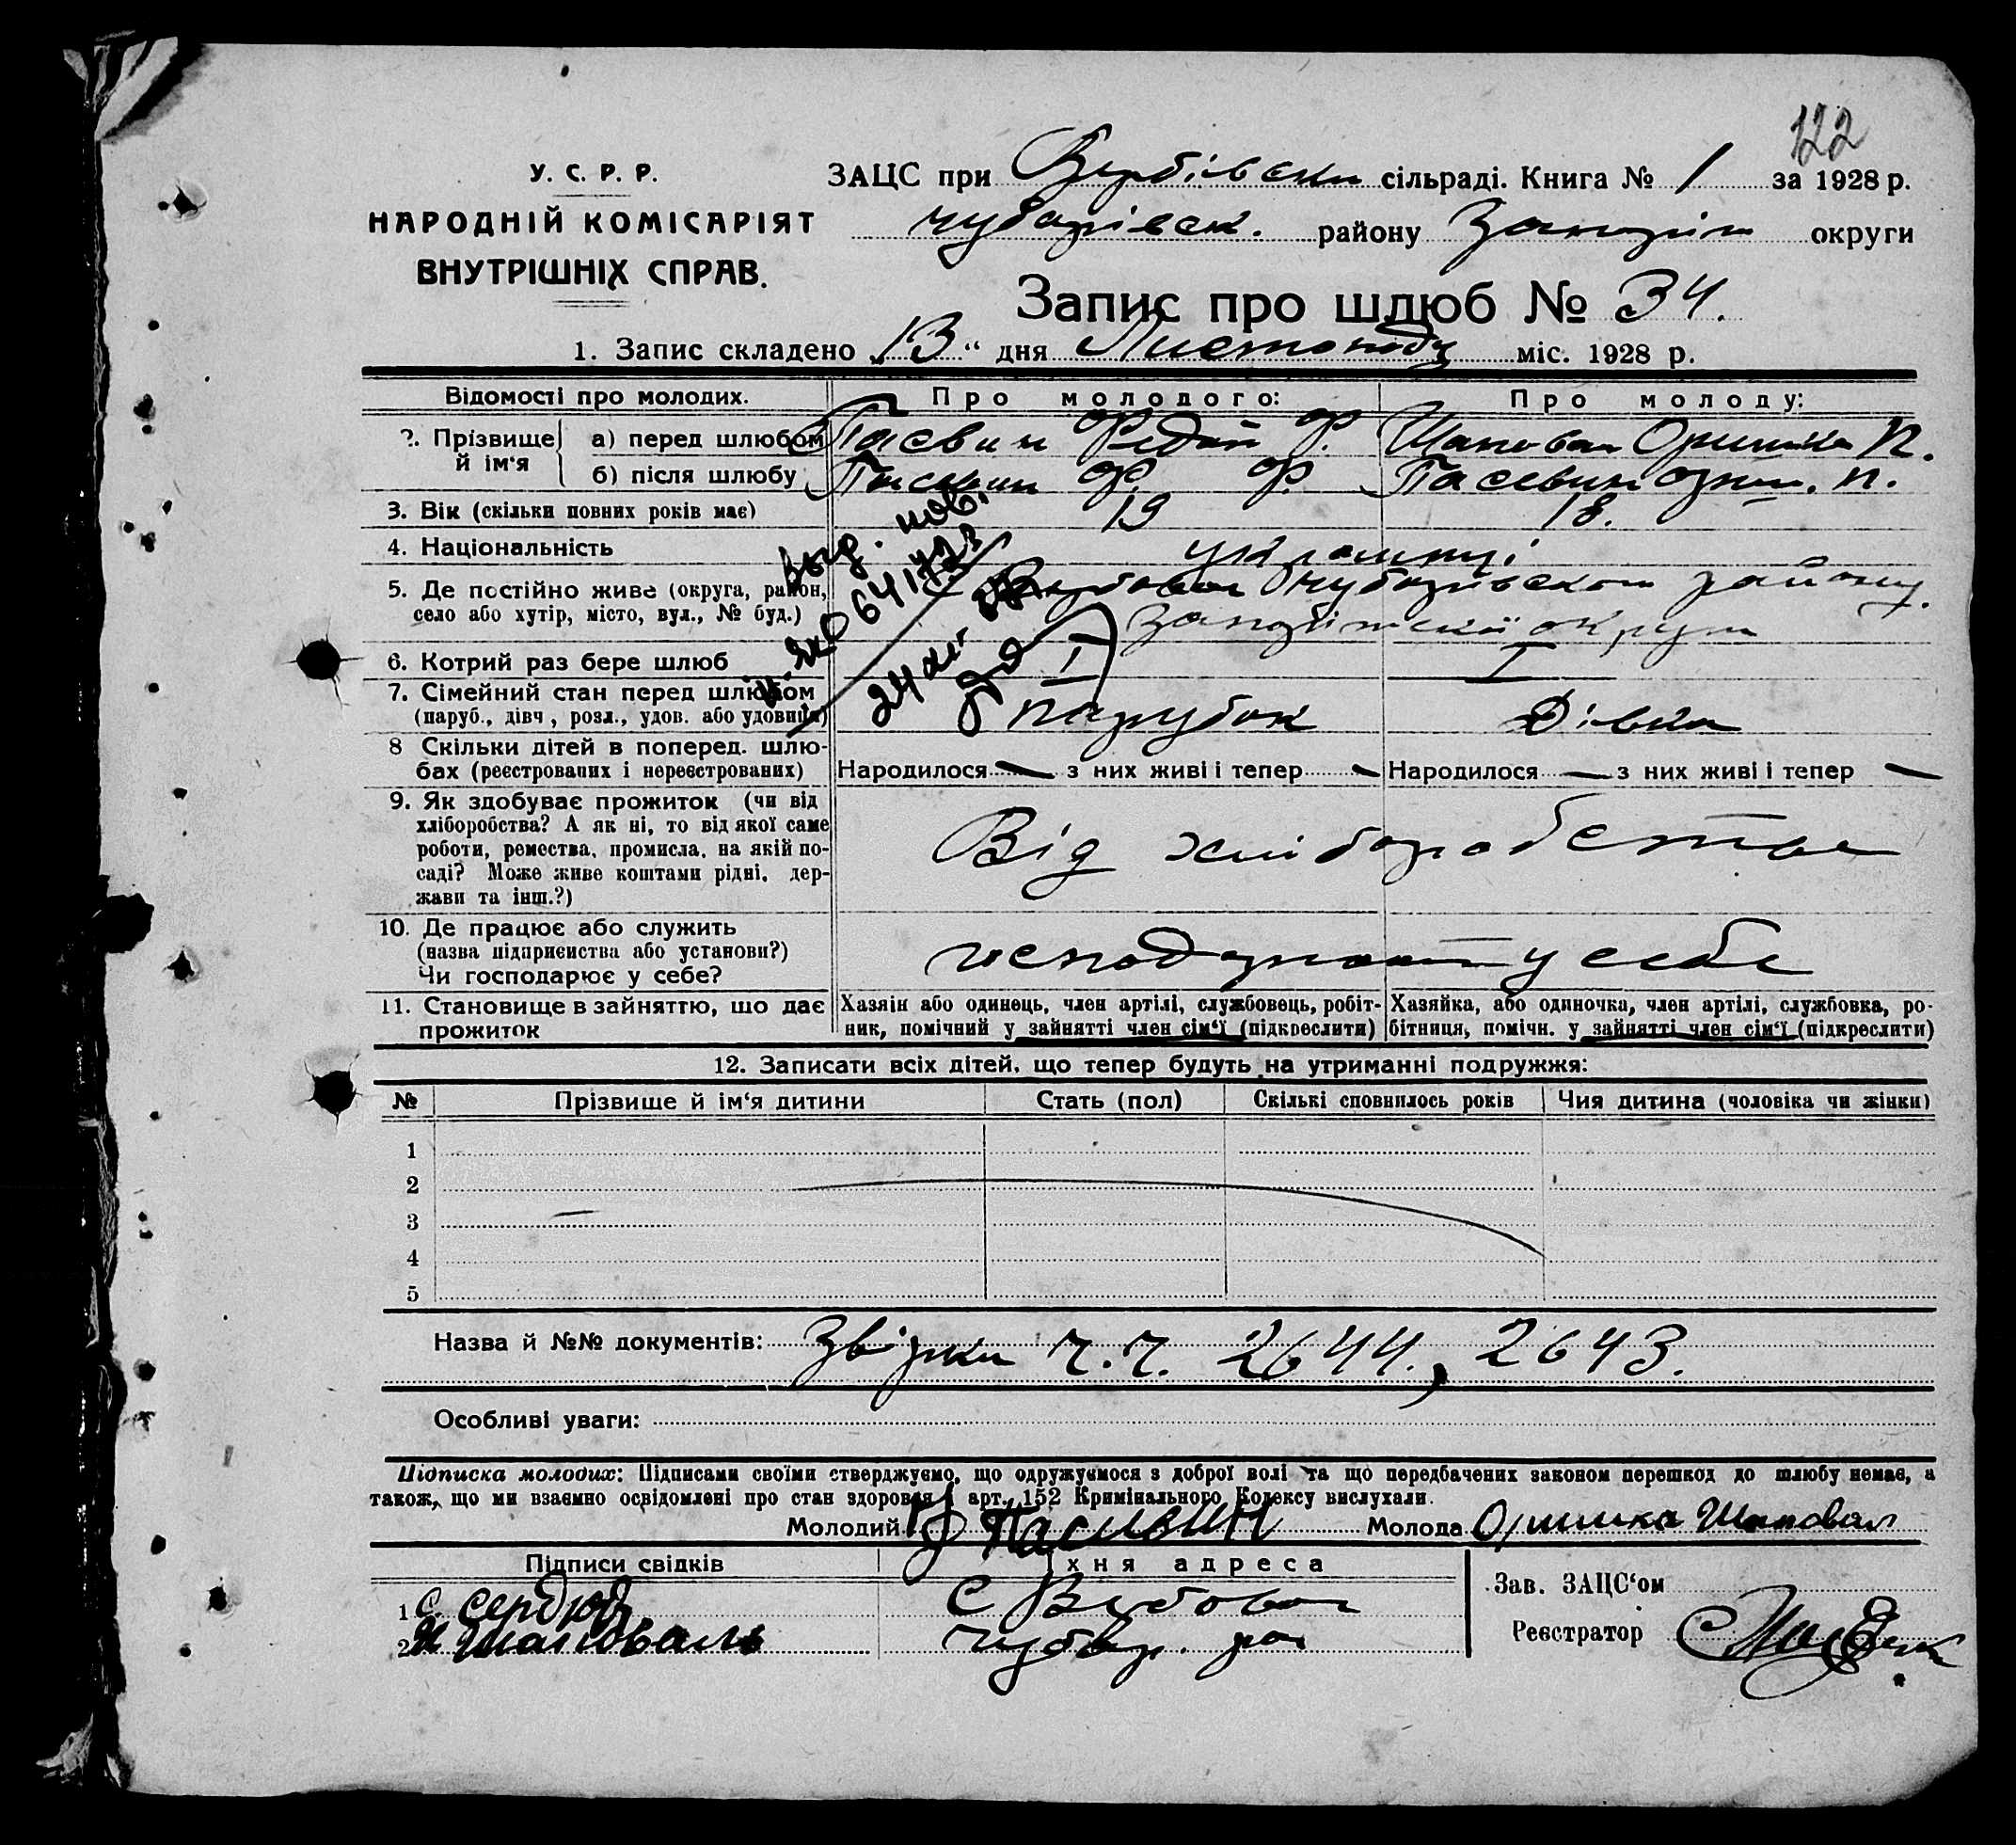 122
У. С. Р. Р.
НАРОДНІЙ КОМІСАРІЯТ
ВНУТРІШНІХ СПРАВ.
ЗАЦС при Вербівськ сільраді. Книга № 1 за 1928 р.
Чубарівськ. району Запоріж округи
Запис про шлюб № 34.
1. Запис складено „13“ дня Листопаду міс. 1928 р.
Відомості про молодих. Про молодого: Про молоду:
2. Прізвище й ім‘я
а) перед шлюбом Пасевин Федот Ф. Шаповал Оришка П.
б) після шлюбу Пасевин Ф. Ф. Пасевин Ориш. П.
3. Вік (скільки повних років має) 19 18.
4. Національність українці
5. Де постійно живе (округа, район, село або хутір, місто, вул., № буд.) с. Вербова Чубарівського району Запоріжської округи
6. Котрий раз бере шлюб I I
7. Сімейний стан перед шлюбом (паруб., дівч., розл., удов. або удовиця) парубок Дівка
8 Скільки дітей в поперед. шлюбах (реєстрованих і нереєстрованих) Народилося — з них живі і тепер — Народилося — з них живі і тепер —
9. Як здобуває прожиток (чи від хліборобства? А як ні, то від якої саме роботи, ремества, промисла, на якій посаді? Може живе коштами рідні, держави та інш.?) Від хліборобства
10. Де працює або служить (назва підприємства або установи?) Чи господарює у себе? господарюють у себе
11. Становище в зайняттю, що дає прожиток
Хазяїн або одинець, член артілі, службовець, робітник, помічний у зайнятті член сім‘ї (підкреслити)
Хазяйка, або одиночка, член артілі, службовка, робітниця, помічн. у зайнятті член сім‘ї (підкреслити)
12. Записати всіх дітей, що тепер будуть на утриманні подружжя:
№ Прізвище й ім‘я дитини Стать (пол) Скількі сповнилось років Чия дитина (чоловіка чи жінки)
1
2
3
4
5
Назва й №№ документів: Звірки ч.ч. 2644., 2643.
Особливі уваги:
Підписка молодих: Підписами своїми стверджуємо, що одружуємося з доброї волі та що передбачених законом перешкод до шлюбу немає, а
також, що ми взаємно освідомлені про стан здоровля і арт. 152 Кримінального Кодексу вислухали.
Молодий Пасивин Молода Оришка Шаповал
Підписи свідків Їхня адреса
1 С. Сердюк С Вербова
2 Шаповаль Чубар. рай
Зав. ЗАЦС‘ом
Реєстратор